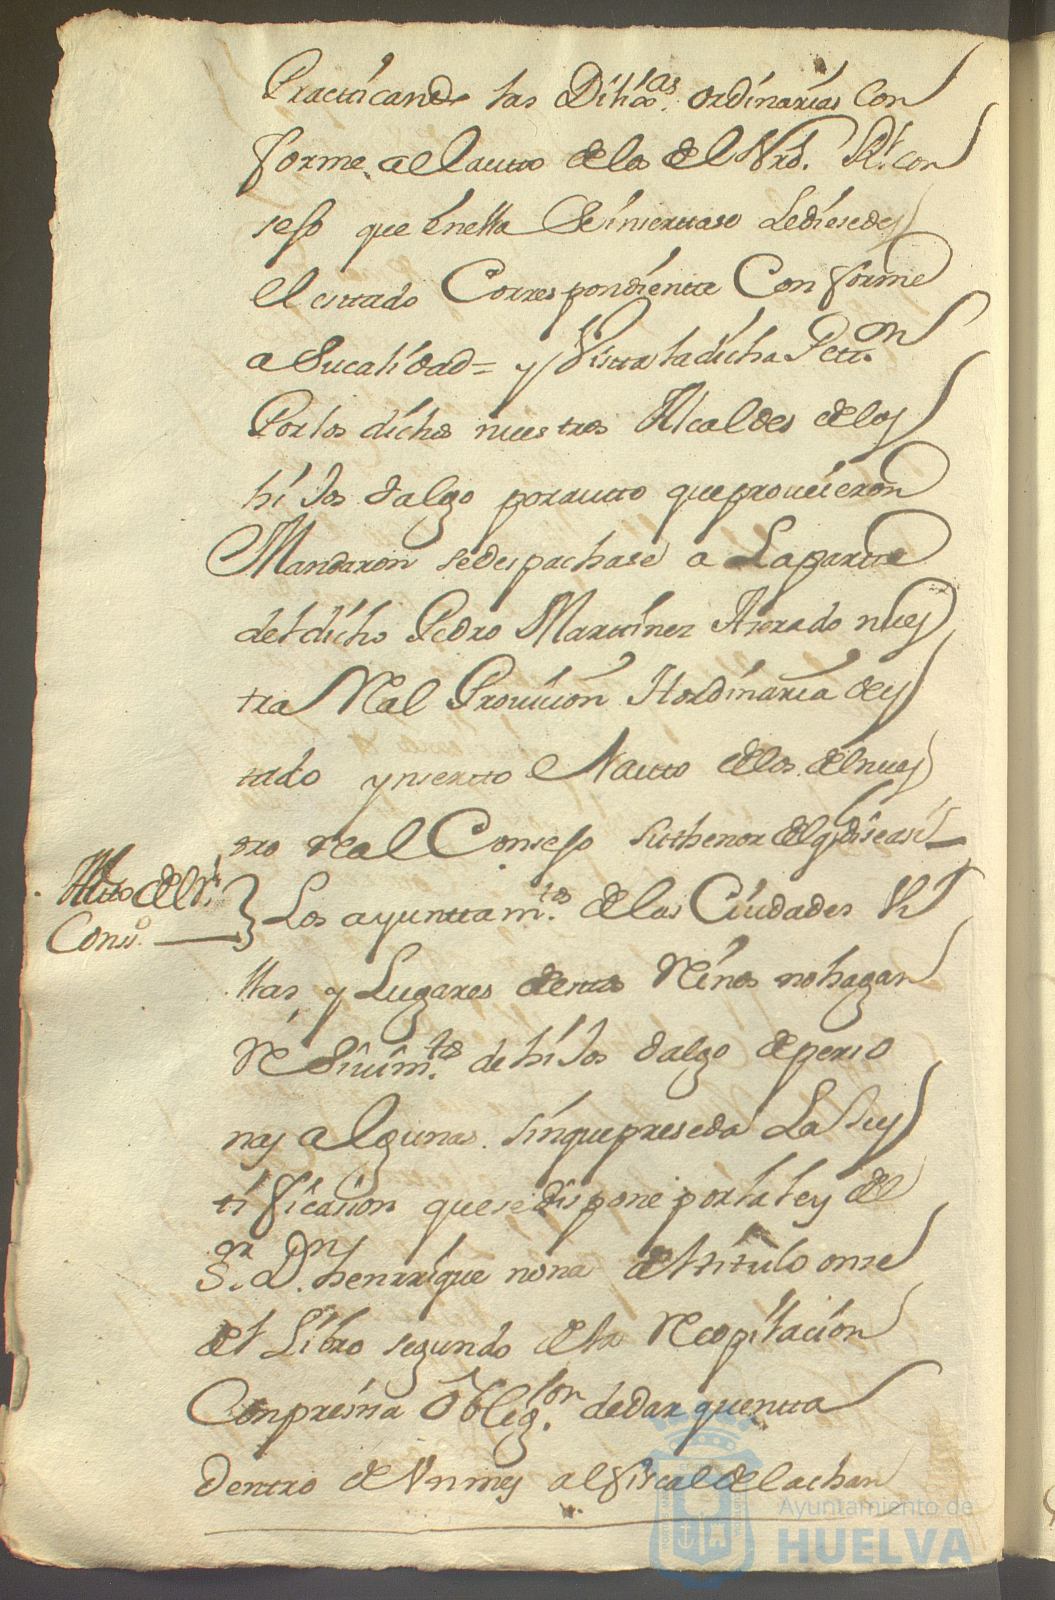 Practicando las Dilix.as ordinarias Con
forme al lauto de los del Nro. Rl. con
sejo que enella Seinsertase Lediesedes
el estado Correspondiente Conforme
a Sucalidad = y Vista la dicha Petz.on
Por los dichos nuestros Alcaldes delos
hi Jos dalgo porautto queproveieron
Mandaron sedespachase a Laparte
del dicho Pedro Marttinez nues
tra Real Provicion Hordinaria dees
tado ynserto el Nautto delos delnues
tro real Consejo suthenor delqdiseasi
Auto del Rl.
Conso.
Los ayunttam.tos delas Ciudades Vi
llas y Lugares destos Reinos nohagan
ReSivim.tos de hi Jos dalgo apersso
nas algunas sinquepreseda La Jus
tificasion quese dispone porla ley del
S.or D.n henrrique nona deltitulo onse
del Libro segundo dela Recopilacion
Conpresisa Oblig.ion dedar quentta
dentro de Un mes al fiscal dela chan
Ayuntamiento de
HUELVA